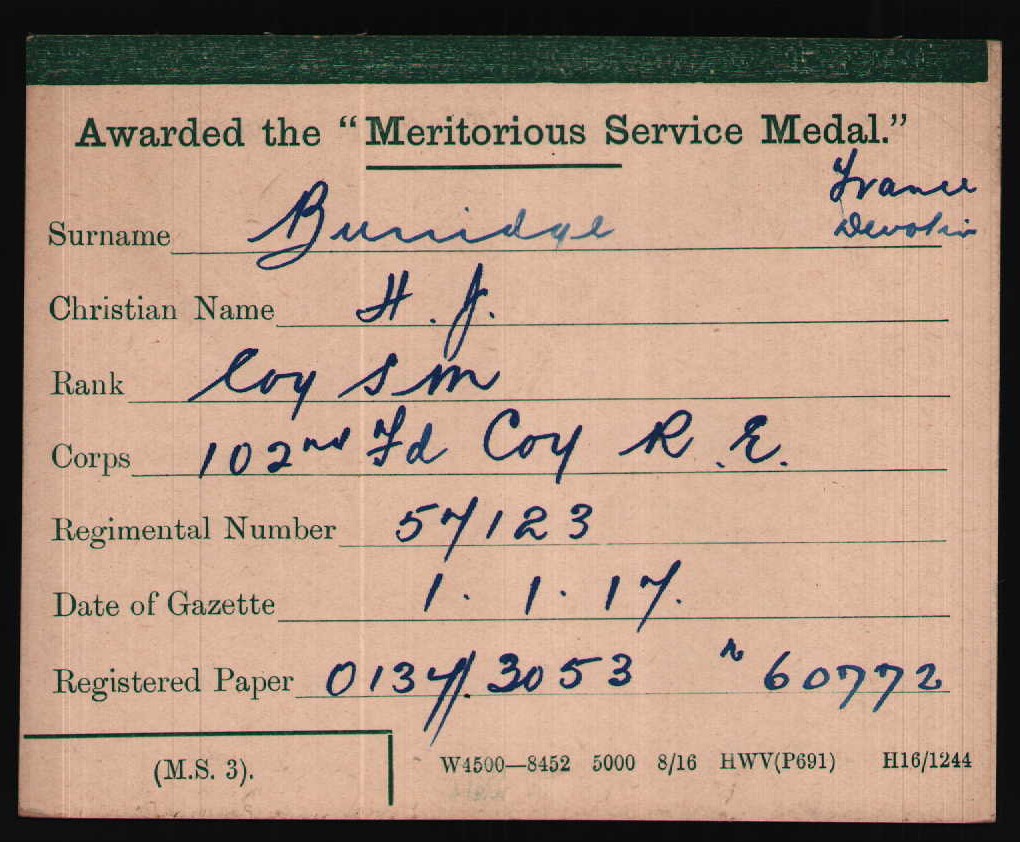 Awarded the “Meritorious Service Medal.”
France
Devotion
Surname Burridge
Christian Name H. J.
Rank Coy S M
Corps 102nd Fd Coy R.E.
Regimental Number 57123
Date of Gazette 1. 1. 17.
Registered Paper 0137/3053 n 60772
(M.S. 3). W4500—8452 5000 8/16 HWV(P691) H16/1244